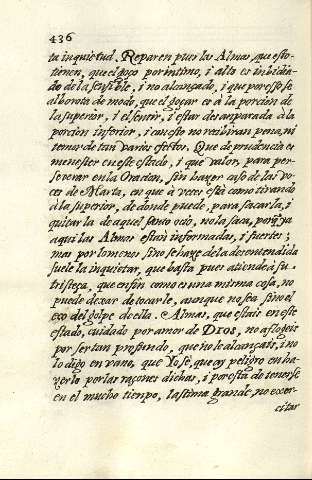 436
ta inquietud. Reparen pues las Almas, que esto
tienen, que el goço por intimo, i alto es inbidia-
do de lo sensible, i no alcançado, i que por esso se
alborota de modo, que el goçar es à la porcion de
la superior, i el sentir, i estar desanparada à la
porcion inferior, i con esto no recibiran pena, ni
temor de tan varios efectos. Que de prudencia es
menester en este estado, i que valor, para per-
severar en la Oracion, sin hazer caso de las vo-
ces de Marta, en que à veces està como tirando
à la superior, de donde puede, para sacarla, i
quitarla de aquel santo ocio, no la saca, porq̃ ya
aqui las Almas estan informadas, i fuertes;
mas por lo menos sino se haze de la desentendida
suele la inquietar, que hasta pues atiende à su
tristeça, que en fin como es una misma cosa, no
puede dexar de tocarle, aunque no sea sino el
eco del golpe de ella. Almas, que estais en este
estado, cuidado por amor de DIOS, no afloxeis
por ser tan profundo, que no le alcançais, i no
lo digo en vano, que Yo sè, que ay peligro en ha-
zerlo por las raçones dichas, i por esta de tenerse
en el mucho tiempo, lastima grande, no exer-
citar